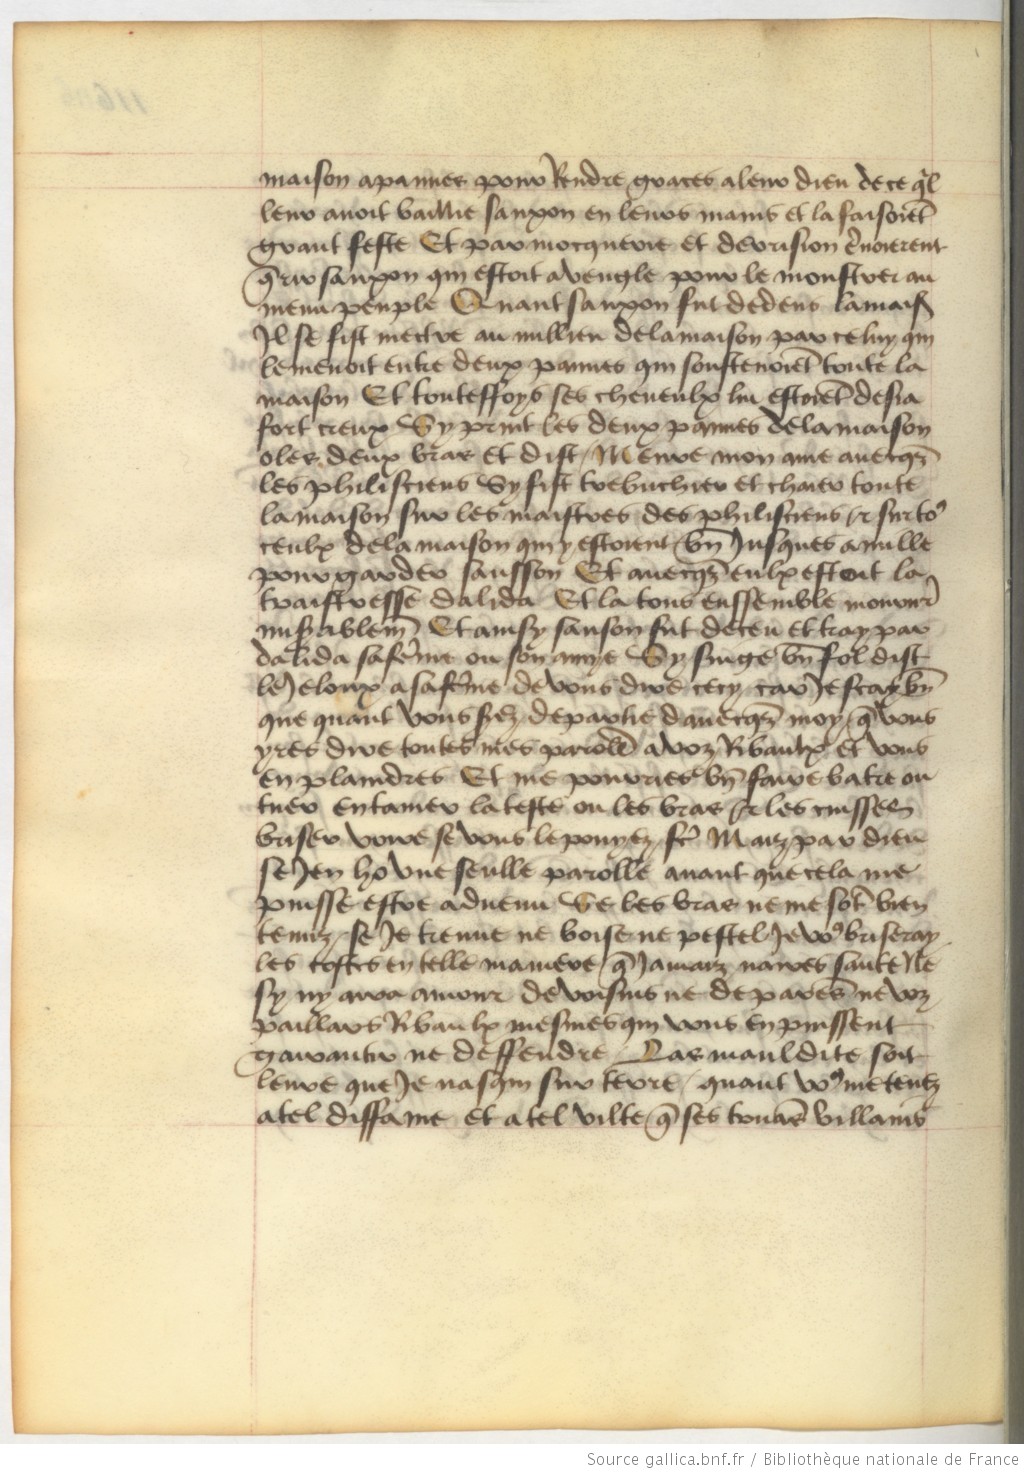 maison a pannes pour Rendre graces a leur dieu de ce q̃l
leur auoit baillie sanxon en leurs mains et la faisoiẽt
grant feste Et par mocquerie et derrision ẽnoierent
q̃rir sanxon qui estoit aveugle pour le monstrer au
menu peuple Quant sanxon fut dedens la maisõ
Il se fist mectre au millieu de la maison par celuy qui
le menoit entre deux pannes qui soustenoiẽt toute la
maison Et touteffoys ses cheueulx lui estoiẽt desia
fort creux Sy print les deux pannes de la maison
o les deux bras et dist / Meure mon ame auecq̃
les philisciens Sy fist trebuchier et chaier toute
la maison sur les maistres des philisciens / et sur to9
ceulx de la maison qui y estoient / bñ Jusques a mille
pour garder sansson Et auecq̃ eulx estoit la
traistresse dalida Et la tous enssemble mourur̃
mis̃ablem̃ Et ainsy sanson fut deceu et tray par
dalida sa fẽme ou son amye Sy sunge bñ fol dist
le Jeloux a sa fẽme de vous dire cecy car Je scay bñ
que quant vous ser̃ departie dauecq̃ moy / q̃ vous
yres dire toutes mes parolẽ a voz Ribaulx et vous
en plaindres Et me pourries bñ faire batre ou
tuer entamer la teste ou les bras / et les cuisses
briser voire se vous le pouyez fẽ Maiz par dieu
se Jen ho vne seulle parolle auant que cela me
puisse estre aduenu Se les bras ne me sõt bien
tenuz / se Je treuue ne boise ne pestel Je vo9 briseray
les costes en telle maniere / q̃ Jamaiz nares sante Ne
sy ny ara amour de voisins ne de parẽs ne voz
paillars Ribaulx mesmes qui vous en puissent
garantir ne deffendre Las mauldite soit
leure que Je nasqui sur terre / quant vo9 me tenez
a tel diffame et a tel vilte q̃ ses truans villains